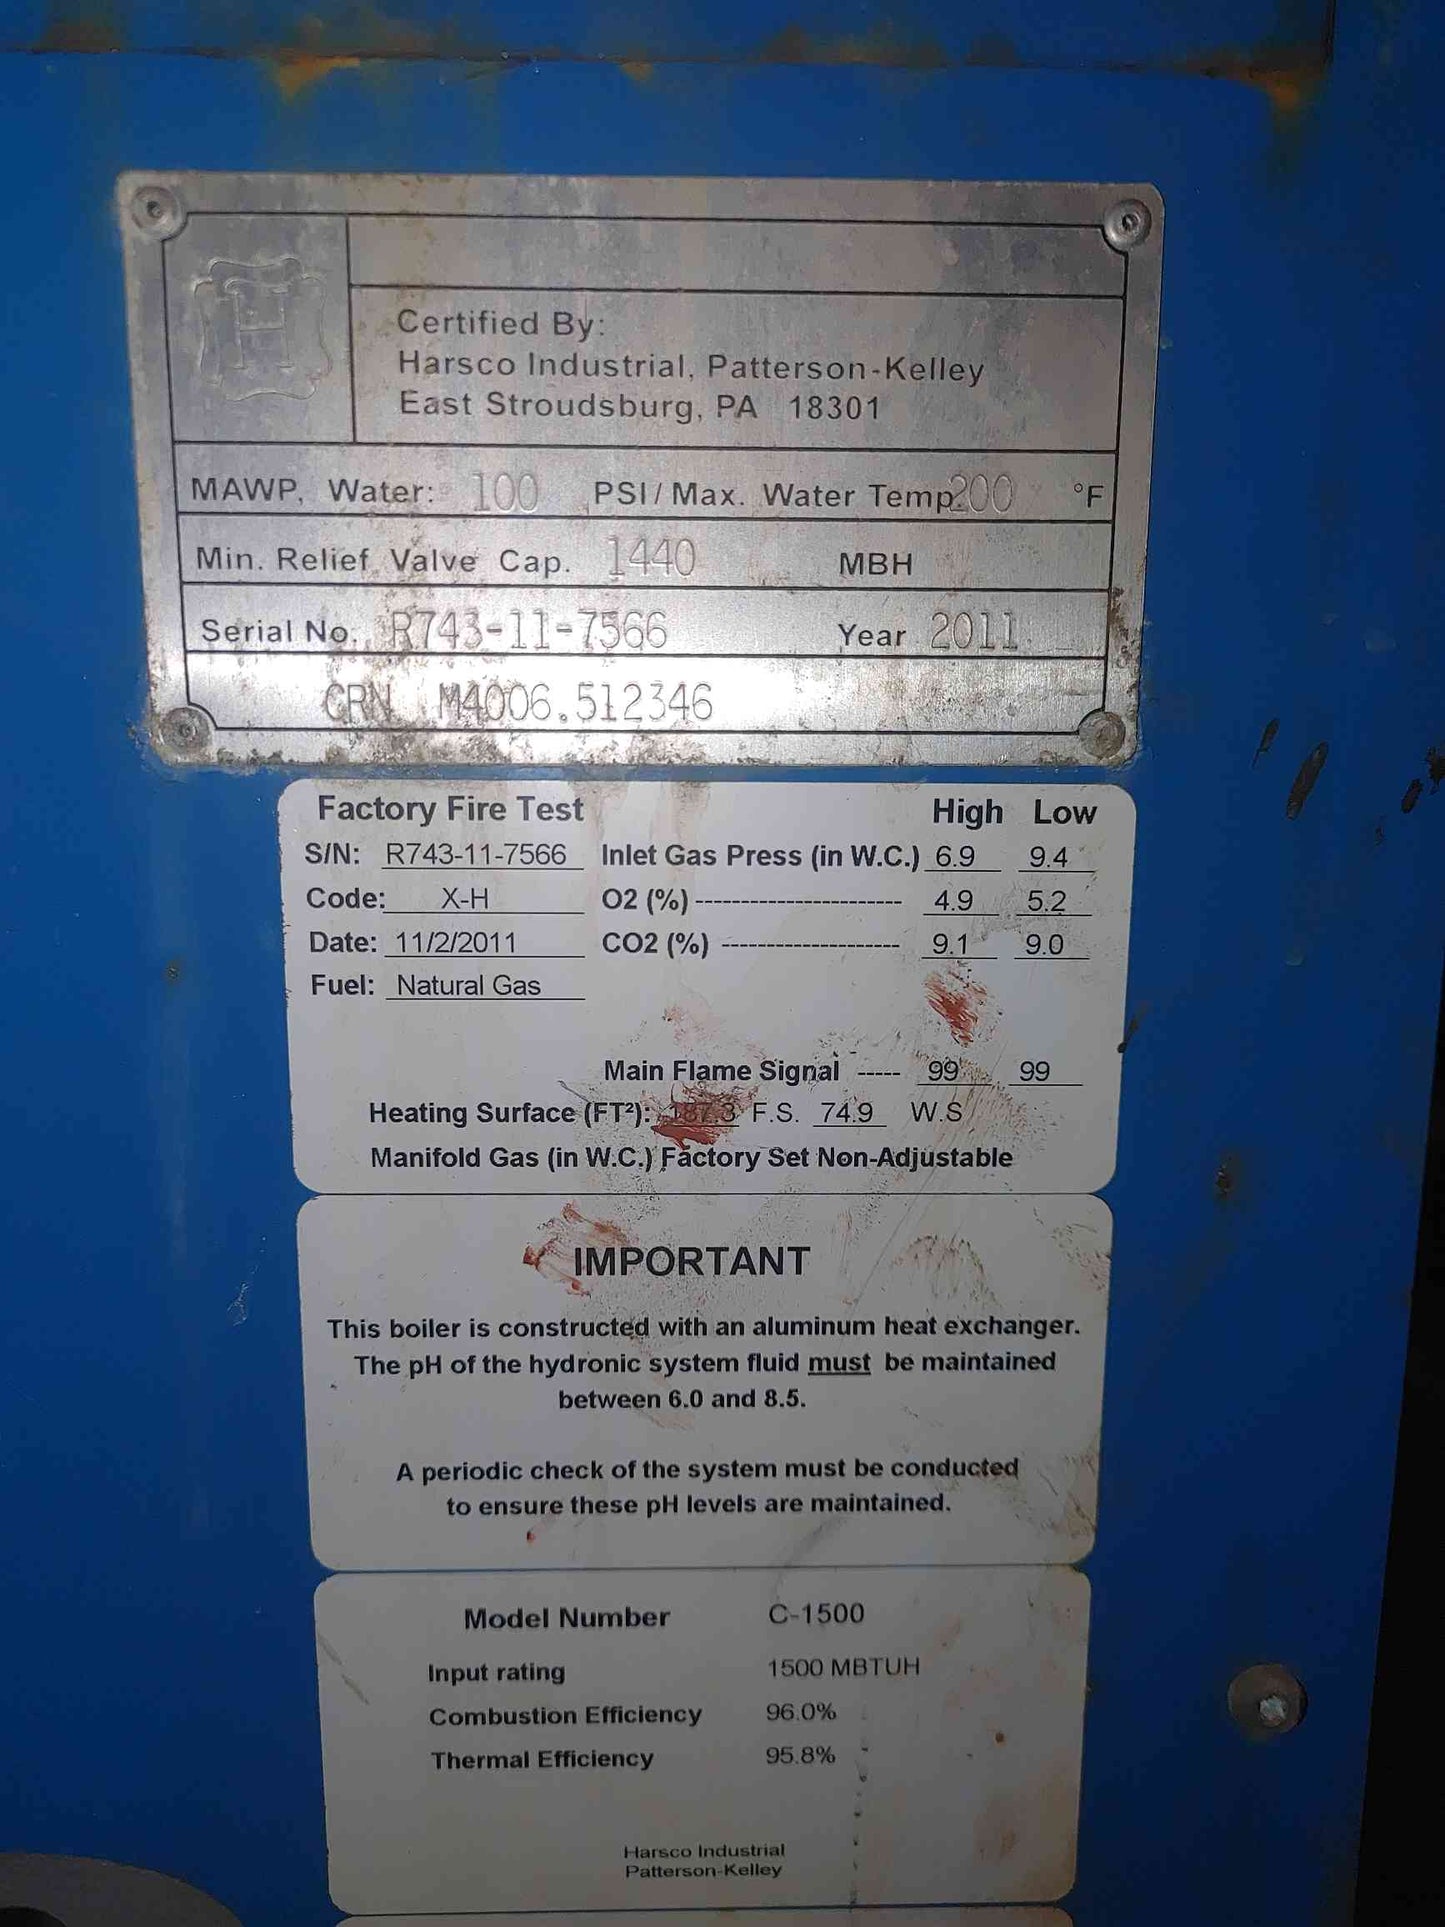 H
Certified By:
Harsco Industrial, Patterson-Kelley
East Stroudsburg, PA 18301
MAWP, Water: 100 PSI/ Max. Water Temp. 200 °F
Min. Relief Valve Cap. 1440 MBH
Serial No. R743-11-7566 Year 2011
CRN M4006.512346
Factory Fire Test High Low
S/N: R743-11-7566 Inlet Gas Press (in W.C.) 6.9 9.4
Code: X-H O2 (%) ----------------------- 4.9 5.2
Date: 11/2/2011 CO2 (%) -------------------- 9.1 9.0
Fuel: Natural Gas
Main Flame Signal ----- 99 99
Heating Surface (FT²): 187.3 F.S. 74.9 W.S
Manifold Gas (in W.C.) Factory Set Non-Adjustable
IMPORTANT
This boiler is constructed with an aluminum heat exchanger.
The pH of the hydronic system fluid must be maintained
between 6.0 and 8.5.
A periodic check of the system must be conducted
to ensure these pH levels are maintained.
Model Number C-1500
Input rating 1500 MBTUH
Combustion Efficiency 96.0%
Thermal Efficiency 95.8%
Harsco Industrial
Patterson-Kelley